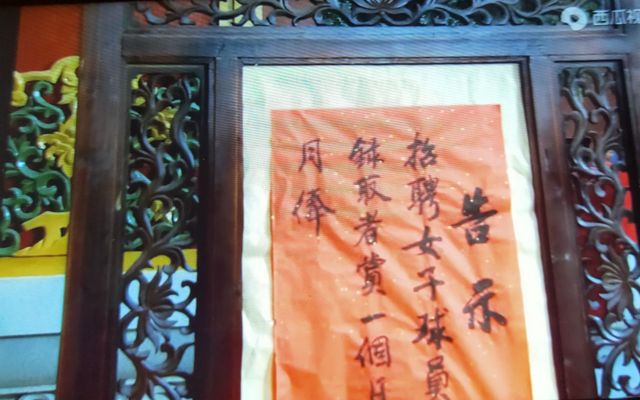 西瓜视
告示
招聘女子球員
錄取者賞一個月
月俸